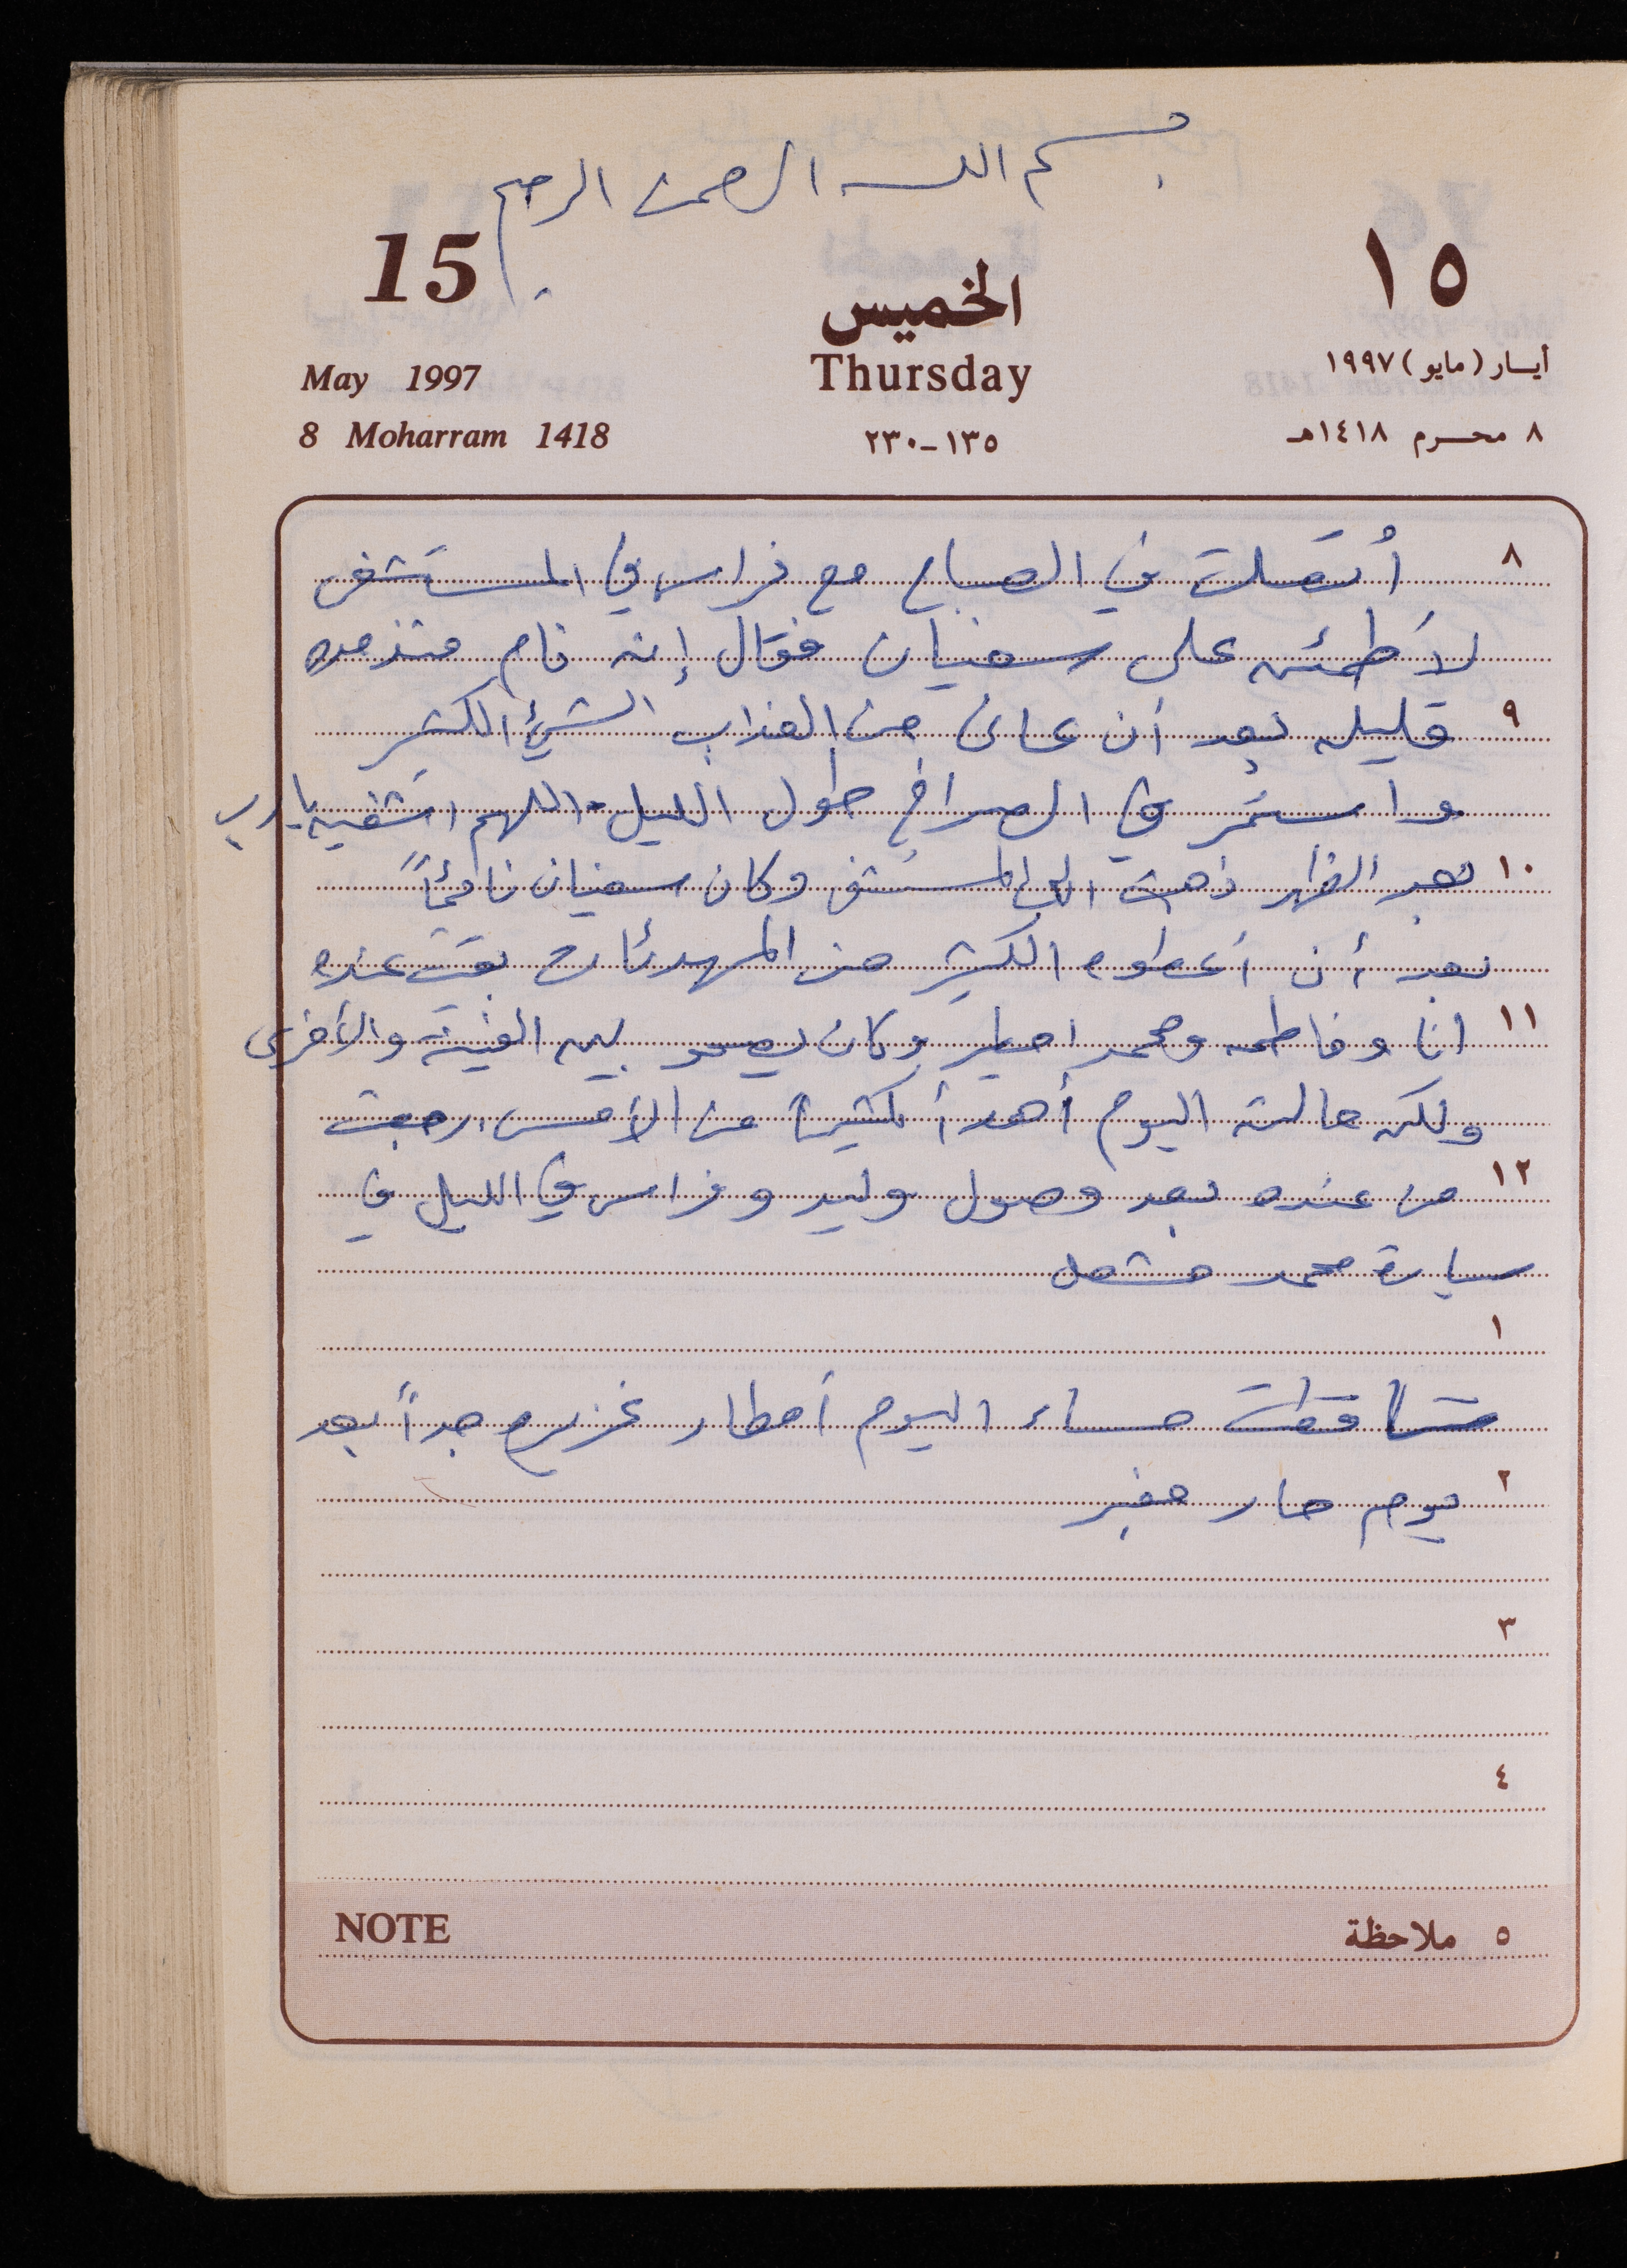 بسم الله الرحمن الرحيم
15
١٥
الخميس
May 1997
Thursday
أيسار (مايو) ١٩٩٧
8 Moharram 1418
١٣٥-٢٣٠
٨ محرم ١٤١٨هـ
٨ أتصلت في الصباح مع فراس في المستشفى
لأطمئن على سفيان فقال إنه نام منذ مده
٩ قليله بعد أن عانى من العذاب الشيئ الكثير
واستمر في الصراخ طول الليل. اللهم اشفيه يارب
١٠ بعد الظهر ذهبت الى المستشفى وكان سفيان نائماً
بعد أن أعطوه الكثير من المهدئات بقيت عنده
١١ انا وفاطمه ومحمد وكان يصحو بين الفينة والأخرى
ولكن حالته اليوم أهدأ كثيراً من الأمس. رجعت
١٢ من عنده بعد وصول وليد وفراس في الليل في
سيارة محمد مشعل
١
تساقطت مساء اليوم أمطار غزيره جداً بعد
٢ يوم حار مغبر
٣
٤
NOTE
٥ ملاحظة